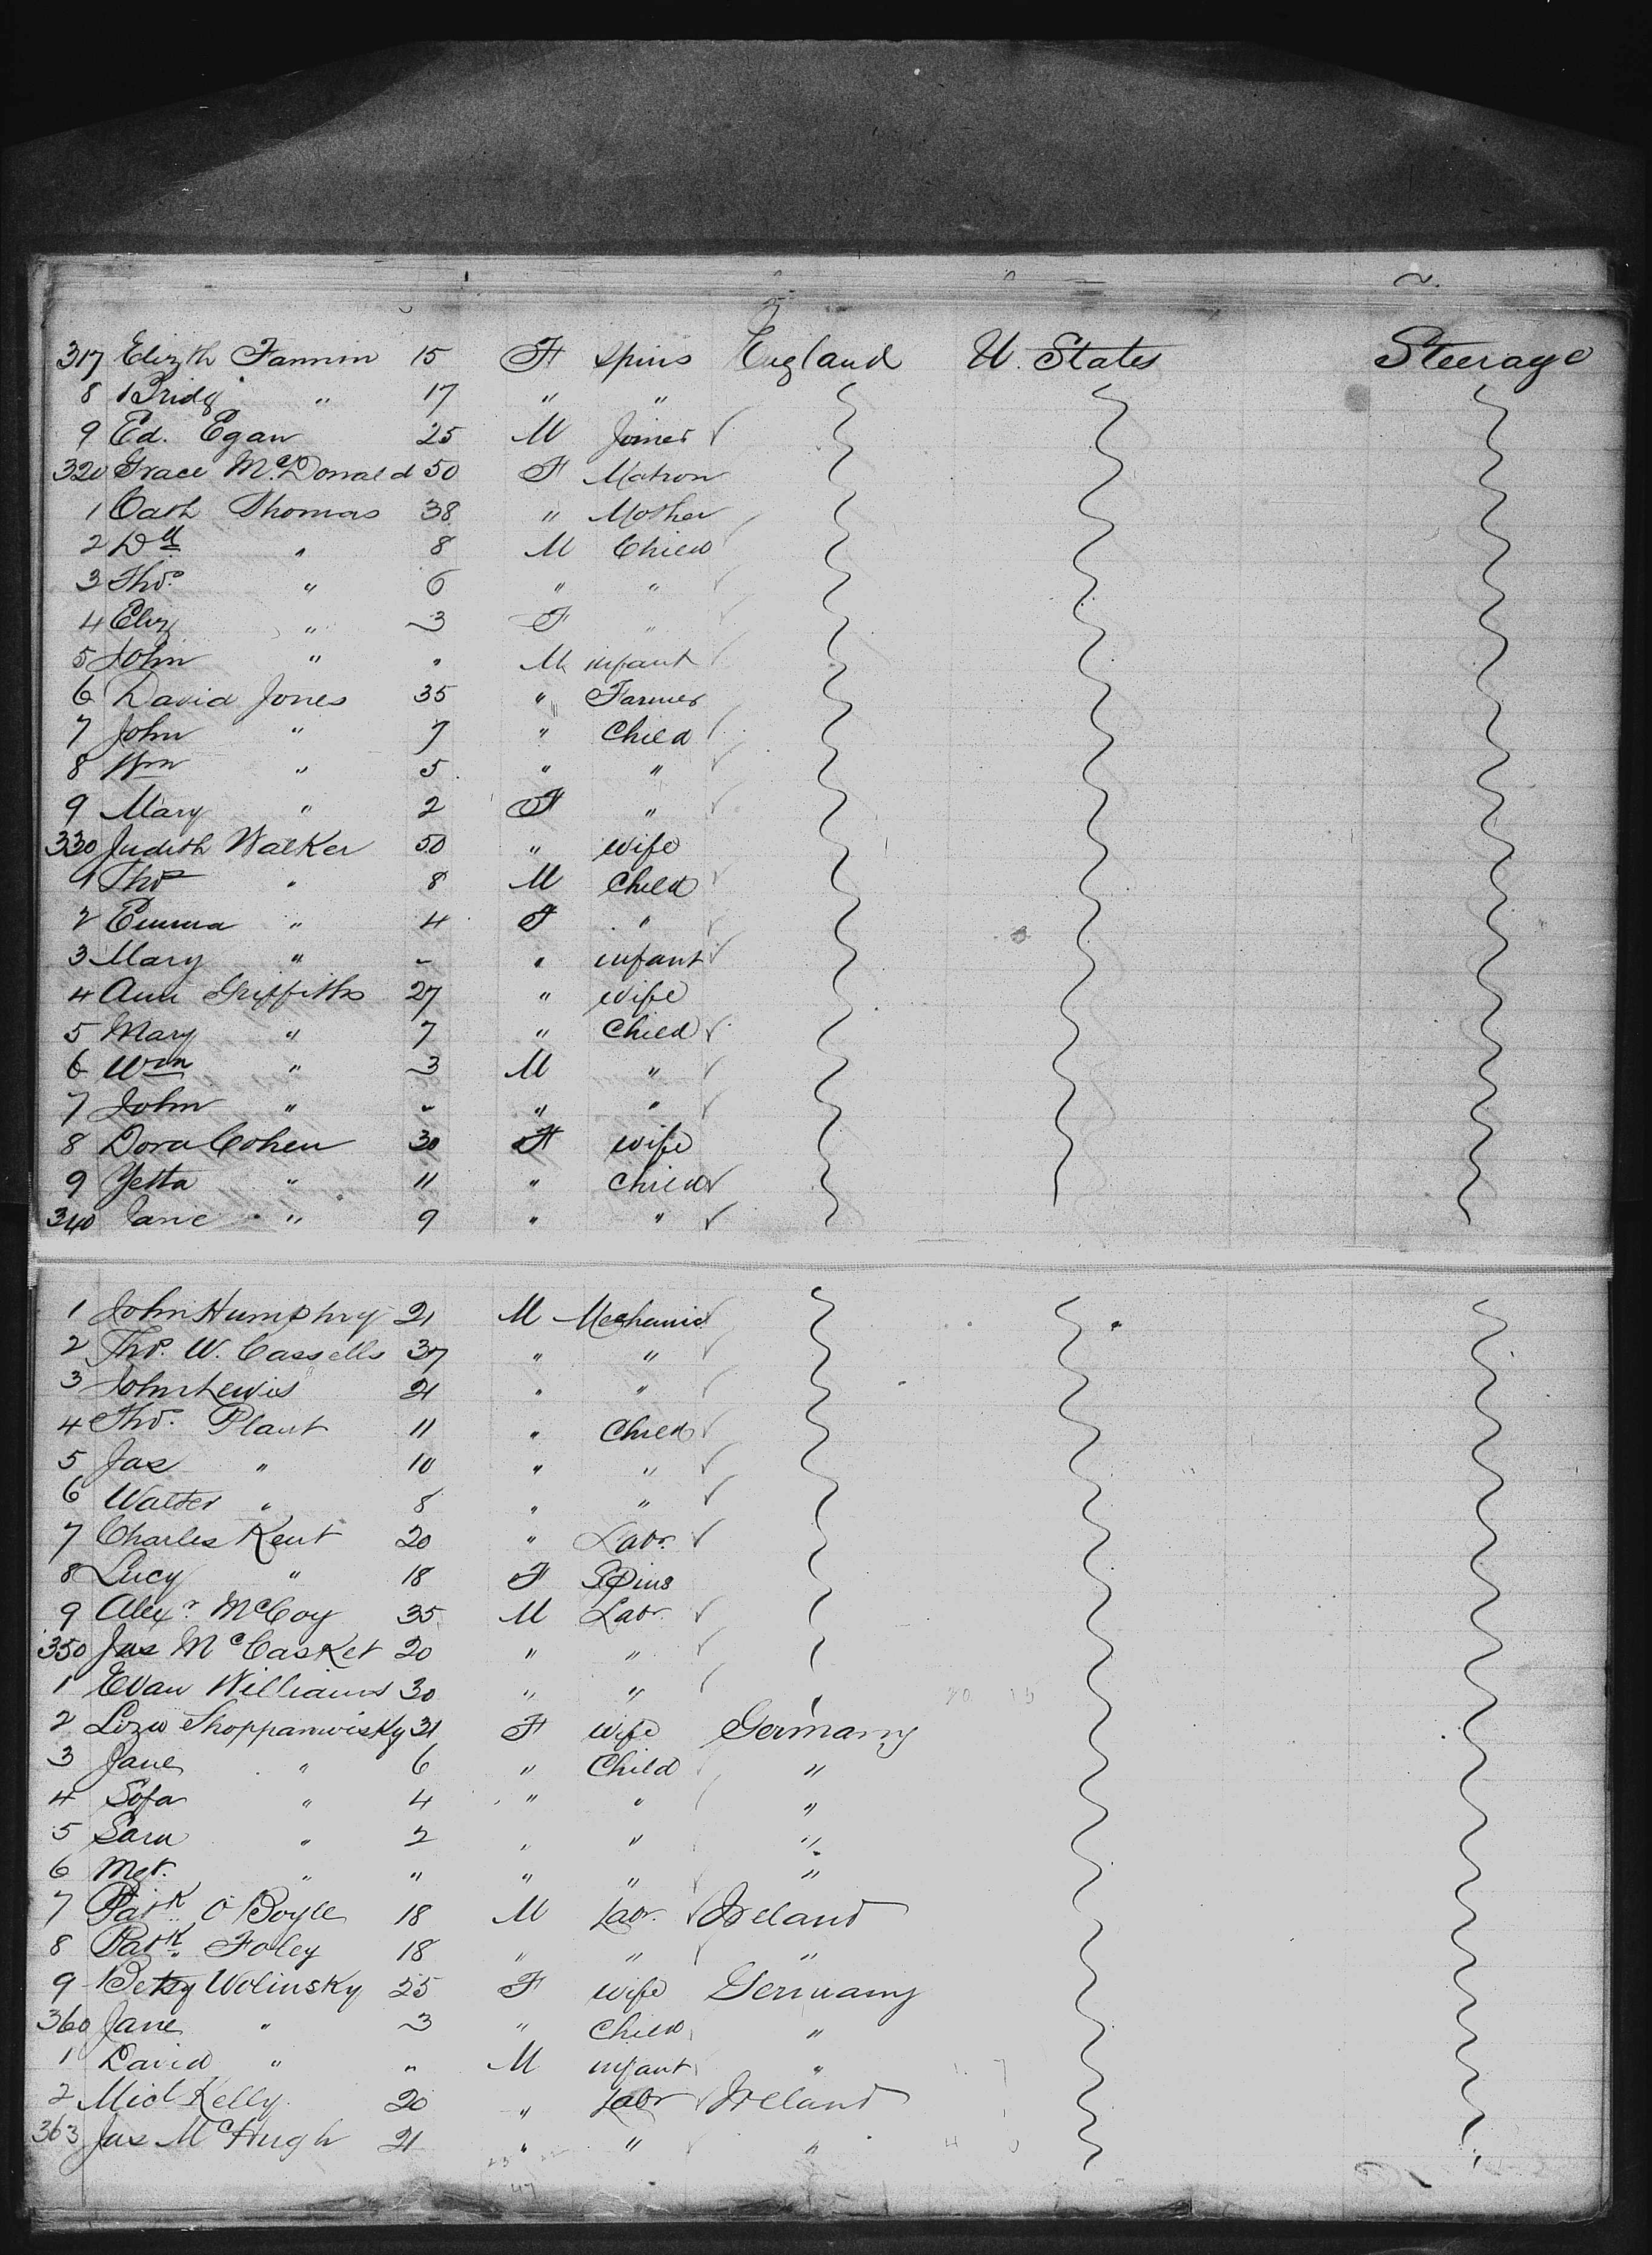 317 Elizth Fannin 15 F Spins England U. States Steerage
8 Bridg " 17 " "
9 Ed. Egan 25 M Joiner
320 Grace McDonald 50 F Matron
1 Cath Thomas 38 " Mother
2 Dd " 8 M Child
3 Thos. " 6 " "
4 Eliz " 3 F "
5 John " " M infant
6 David Jones 35 " Farmer
7 John " 7 " Child
8 Wm " 5 " "
9 Mary " 2 F "
330 Judith Walker 50 " wife
1 Thos " 8 M Child
2 Emma " 4 F "
3 Mary " - " infant
4 Ann Griffiths 27 " wife
5 Mary " 7 " Child
6 Wm " 3 M "
7 John " - " "
8 Dora Cohen 30 F wife
9 Yetta " 11 " Child
340 Jane " 9 " "
1 John Humphry 21 M Mechanic
2 Thos. W. Cassells 37 " "
3 John Lewis 21 " "
4 Thos. Plant 11 " Child
5 Jas " 10 " "
6 Walter " 8 " "
7 Charles Kent 20 " Labr.
8 Lucy " 18 F Spins
9 Alexr McCoy 35 M Labr.
350 Jas McCasket 20 " "
1 Evan Williams 30 " "
2 Liza Shoppanwisky 31 F wife Germany
3 Jane " 6 " Child "
4 Sofa " 4 " " "
5 Sara " 2 " " "
6 Mgt. " " " " "
7 Patk O Boyle 18 M Labr. Ireland
8 Patk. Foley 18 " " "
9 Betsy Wolinsky 25 F wife Germany
360 Jane " 3 " Child "
1 David " " M infant "
2 Micl Kelly 20 " Labr Ireland
363 Jas McHugh 21 " " "